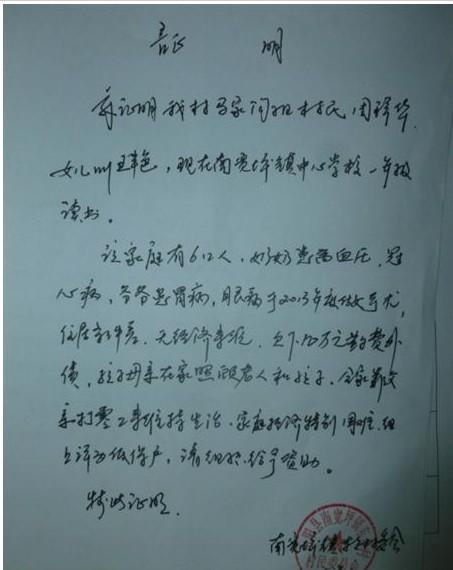 证 明
兹证明我村马家沟组村民周
女儿周艳，现在南宽坪镇中心学校一年级
读书。
该家庭有6口人，奶奶患高血压，冠
心病，爷爷患胃病，眼病于2013年度做手术，
住居条件差，无经济来源，欠下10万元
债，孩子母亲在家照顾老人和孩子，全家靠父
亲打零工来维持生活，家庭经济特别困难，组
上评为低保户，请组织给予资助。
特此证明
南宽坪镇村委会